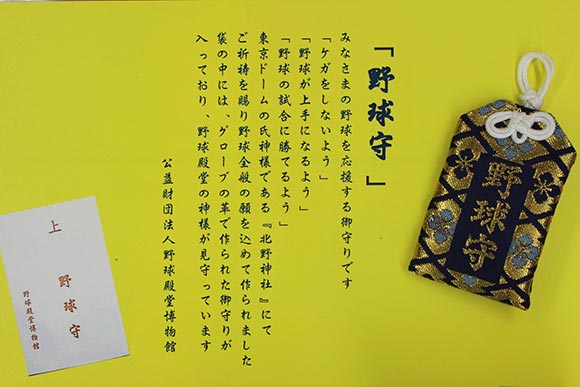 「野球守」
みなさまの野球を応援する御守りです
「ケガをしないよう」
「野球が上手になるよう」
「野球の試合に勝てるよう」
東京ドームの氏神様である『北野神社』にて
ご祈祷を賜り野球全般の願を込めて作られました
袋の中には、グローブの革で作られた御守りが
入っており、野球殿堂の神様が見守っています
公益財団法人野球殿堂博物館
野球守
上
野球守
野球殿堂博物館